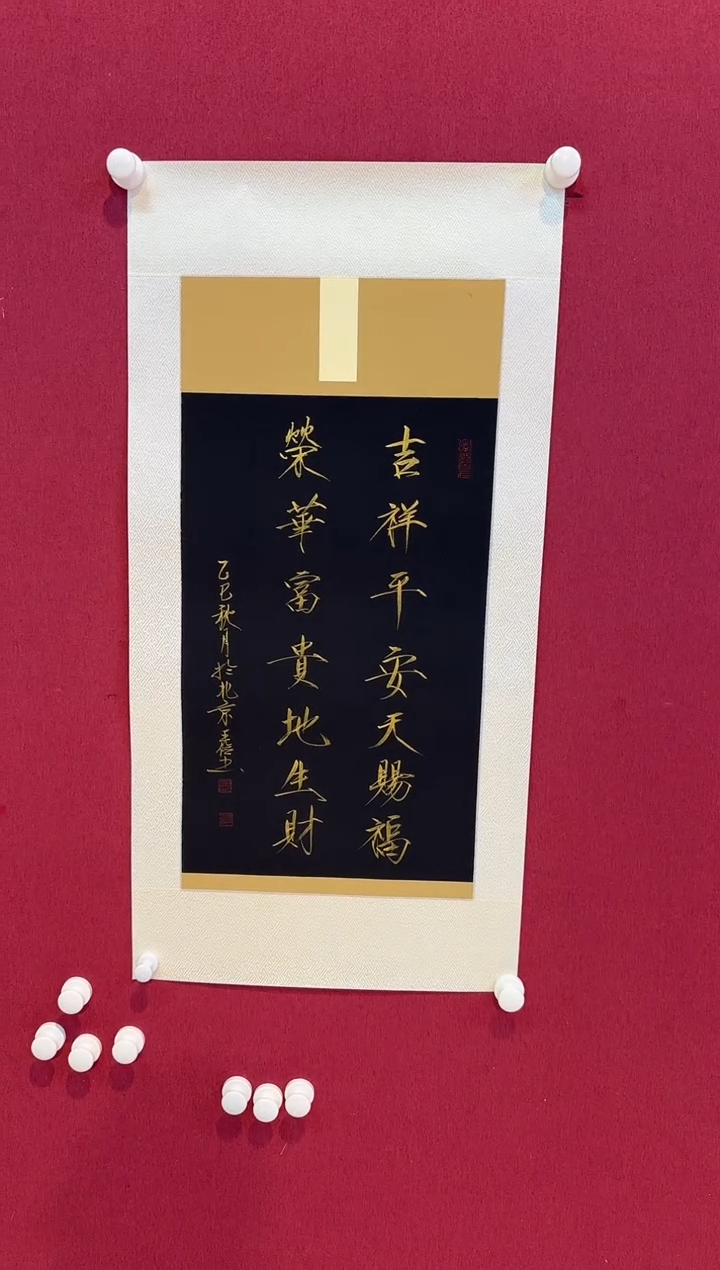 吉祥平安天賜福
榮華富貴地生財
乙巳秋月於北京王